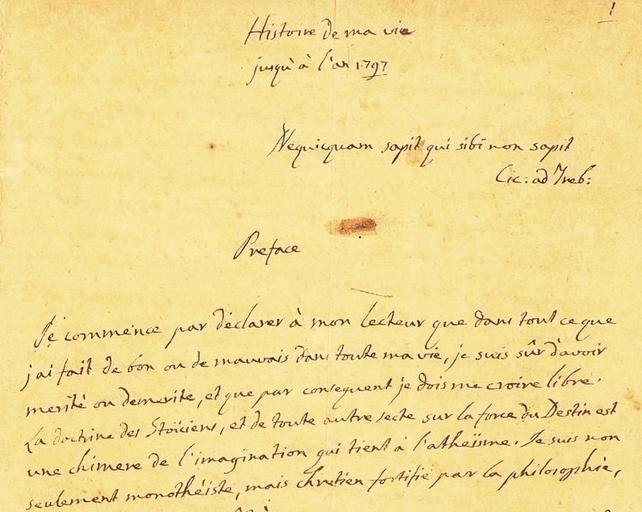 1
Histoire de ma vie
jusqu'à l'an 1797
Nequicquam sapit qui sibi non sapit
Cic: ad Treb:
Preface
Je commence par déclarer à mon lecteur que dans tout ce que
j'ai fait de bon ou de mauvais dans toute ma vie, je suis sûr d'avoir
merité ou demerité, et que par consequent je dois me croire libre.
La doctrine des Stoïciens, et de toute autre secte sur la force du Destin est
une chimere de l'imagination qui tient à l'atheisme. Je suis non
seulement monothéiste, mais chretien fortifié par la philosophie,